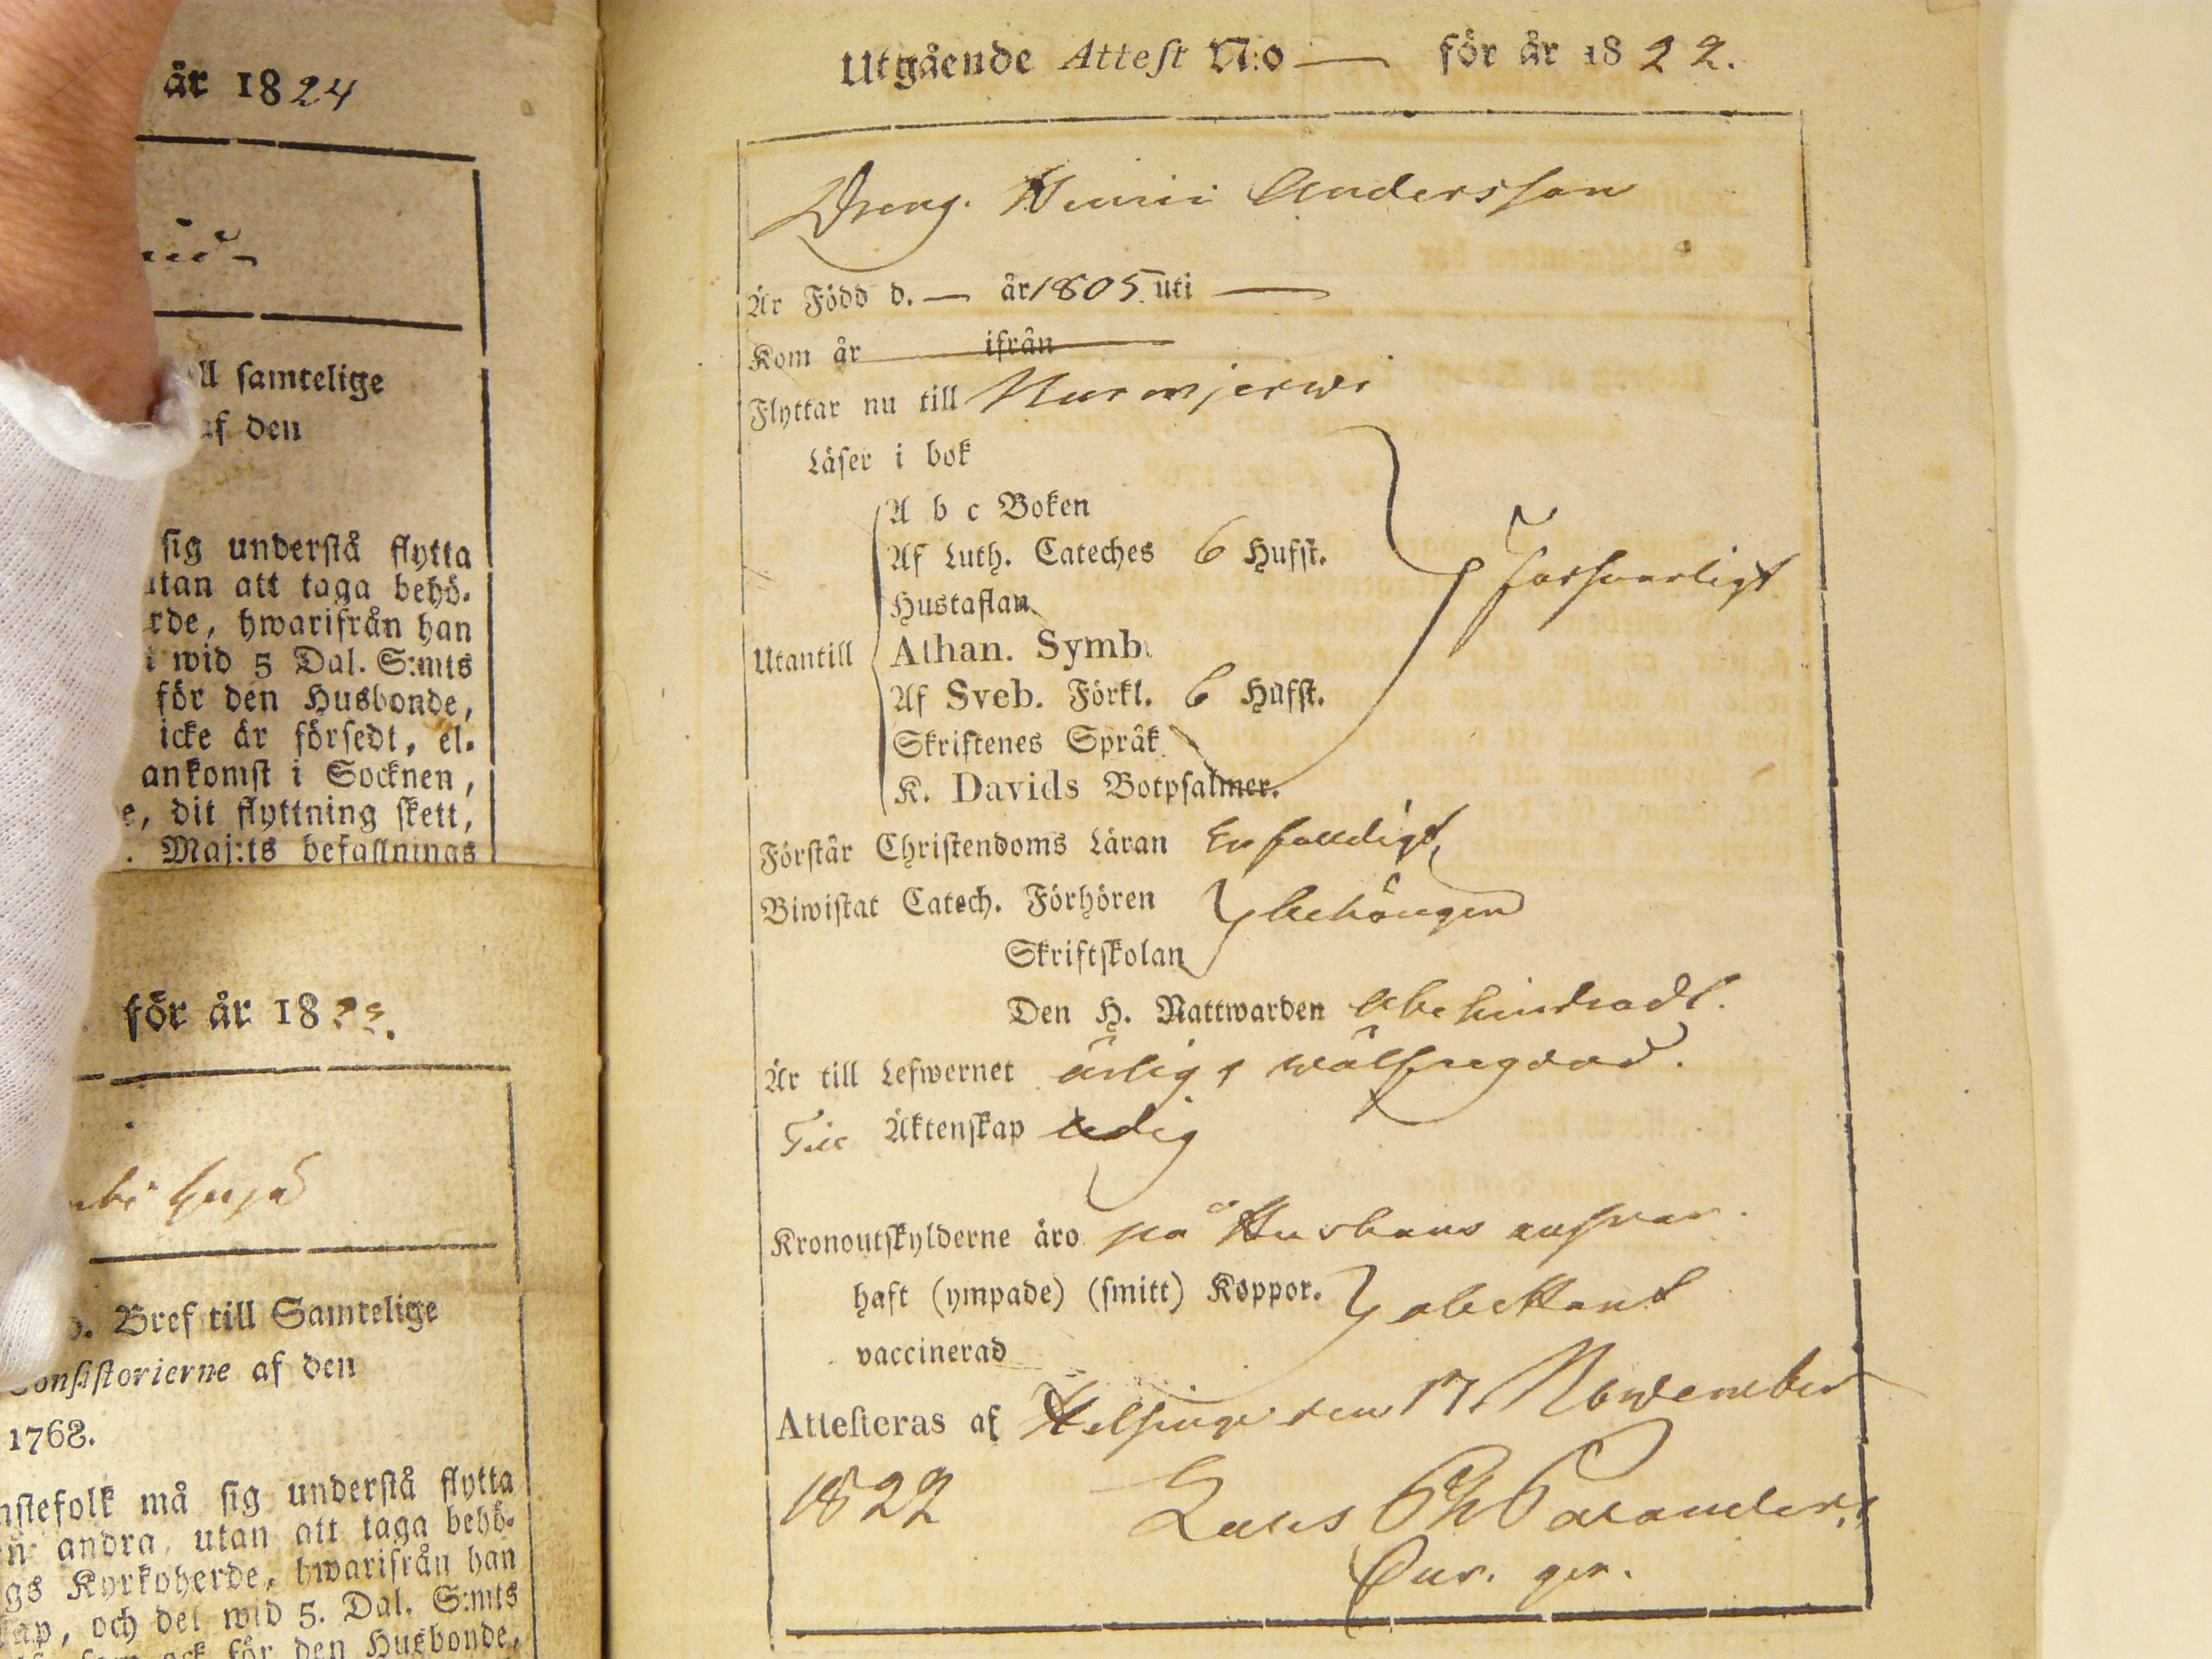 år 1824
ll samtelige
af den
sig understå flytta
utan att taga behö-
rde, hwarifrån han
i wid 5 Dal. S:mts
för den Husbonde,
icke är försedt, el-
ankomst i Socknen,
e, dit flyttning skett,
. Maj:ts befallnings
för år 18
d. Bref till Samtelige
Consistorierne af den
1768.
nstefolk må sig understå flytta
n andra, utan att taga behö-
gs Kyrkoherde, hwarifrån han
ap, och det wid 5. Dal. S:mts
som ock för den Husbonde,
Utgående Attest N:o — för år 1822.
Dreng. Henric Andersson
Är Född d. — år 1805. uti —
Kom år — ifrån —
Flyttar nu till Nurmjerwi
Läser i bok
A b c Boken
Af Luth. Cateches 6 Hufst.
Hustaflan
Utantill Athan. Symb.
Af Sveb. Förkl. 6 Hufst.
Skriftenes Språk
K. Davids Botpsalmer.
Försvarligt
Förstår Christendoms Läran Enfaldigt
Biwistat Catech. Förhören behörigen
Skriftskolan
Den H. Nattwarden obehindradt.
Är till Lefwernet ärlig & wälfregdad.
Till Äktenskap ledig
Kronoutskylderne äro på Husbons ansvar.
haft (ympade) (smitt) Koppor. obekant
vaccinerad
Attesteras af Helsinge den 17 November
1822 Lars Ph Palander.
Cur. ger.